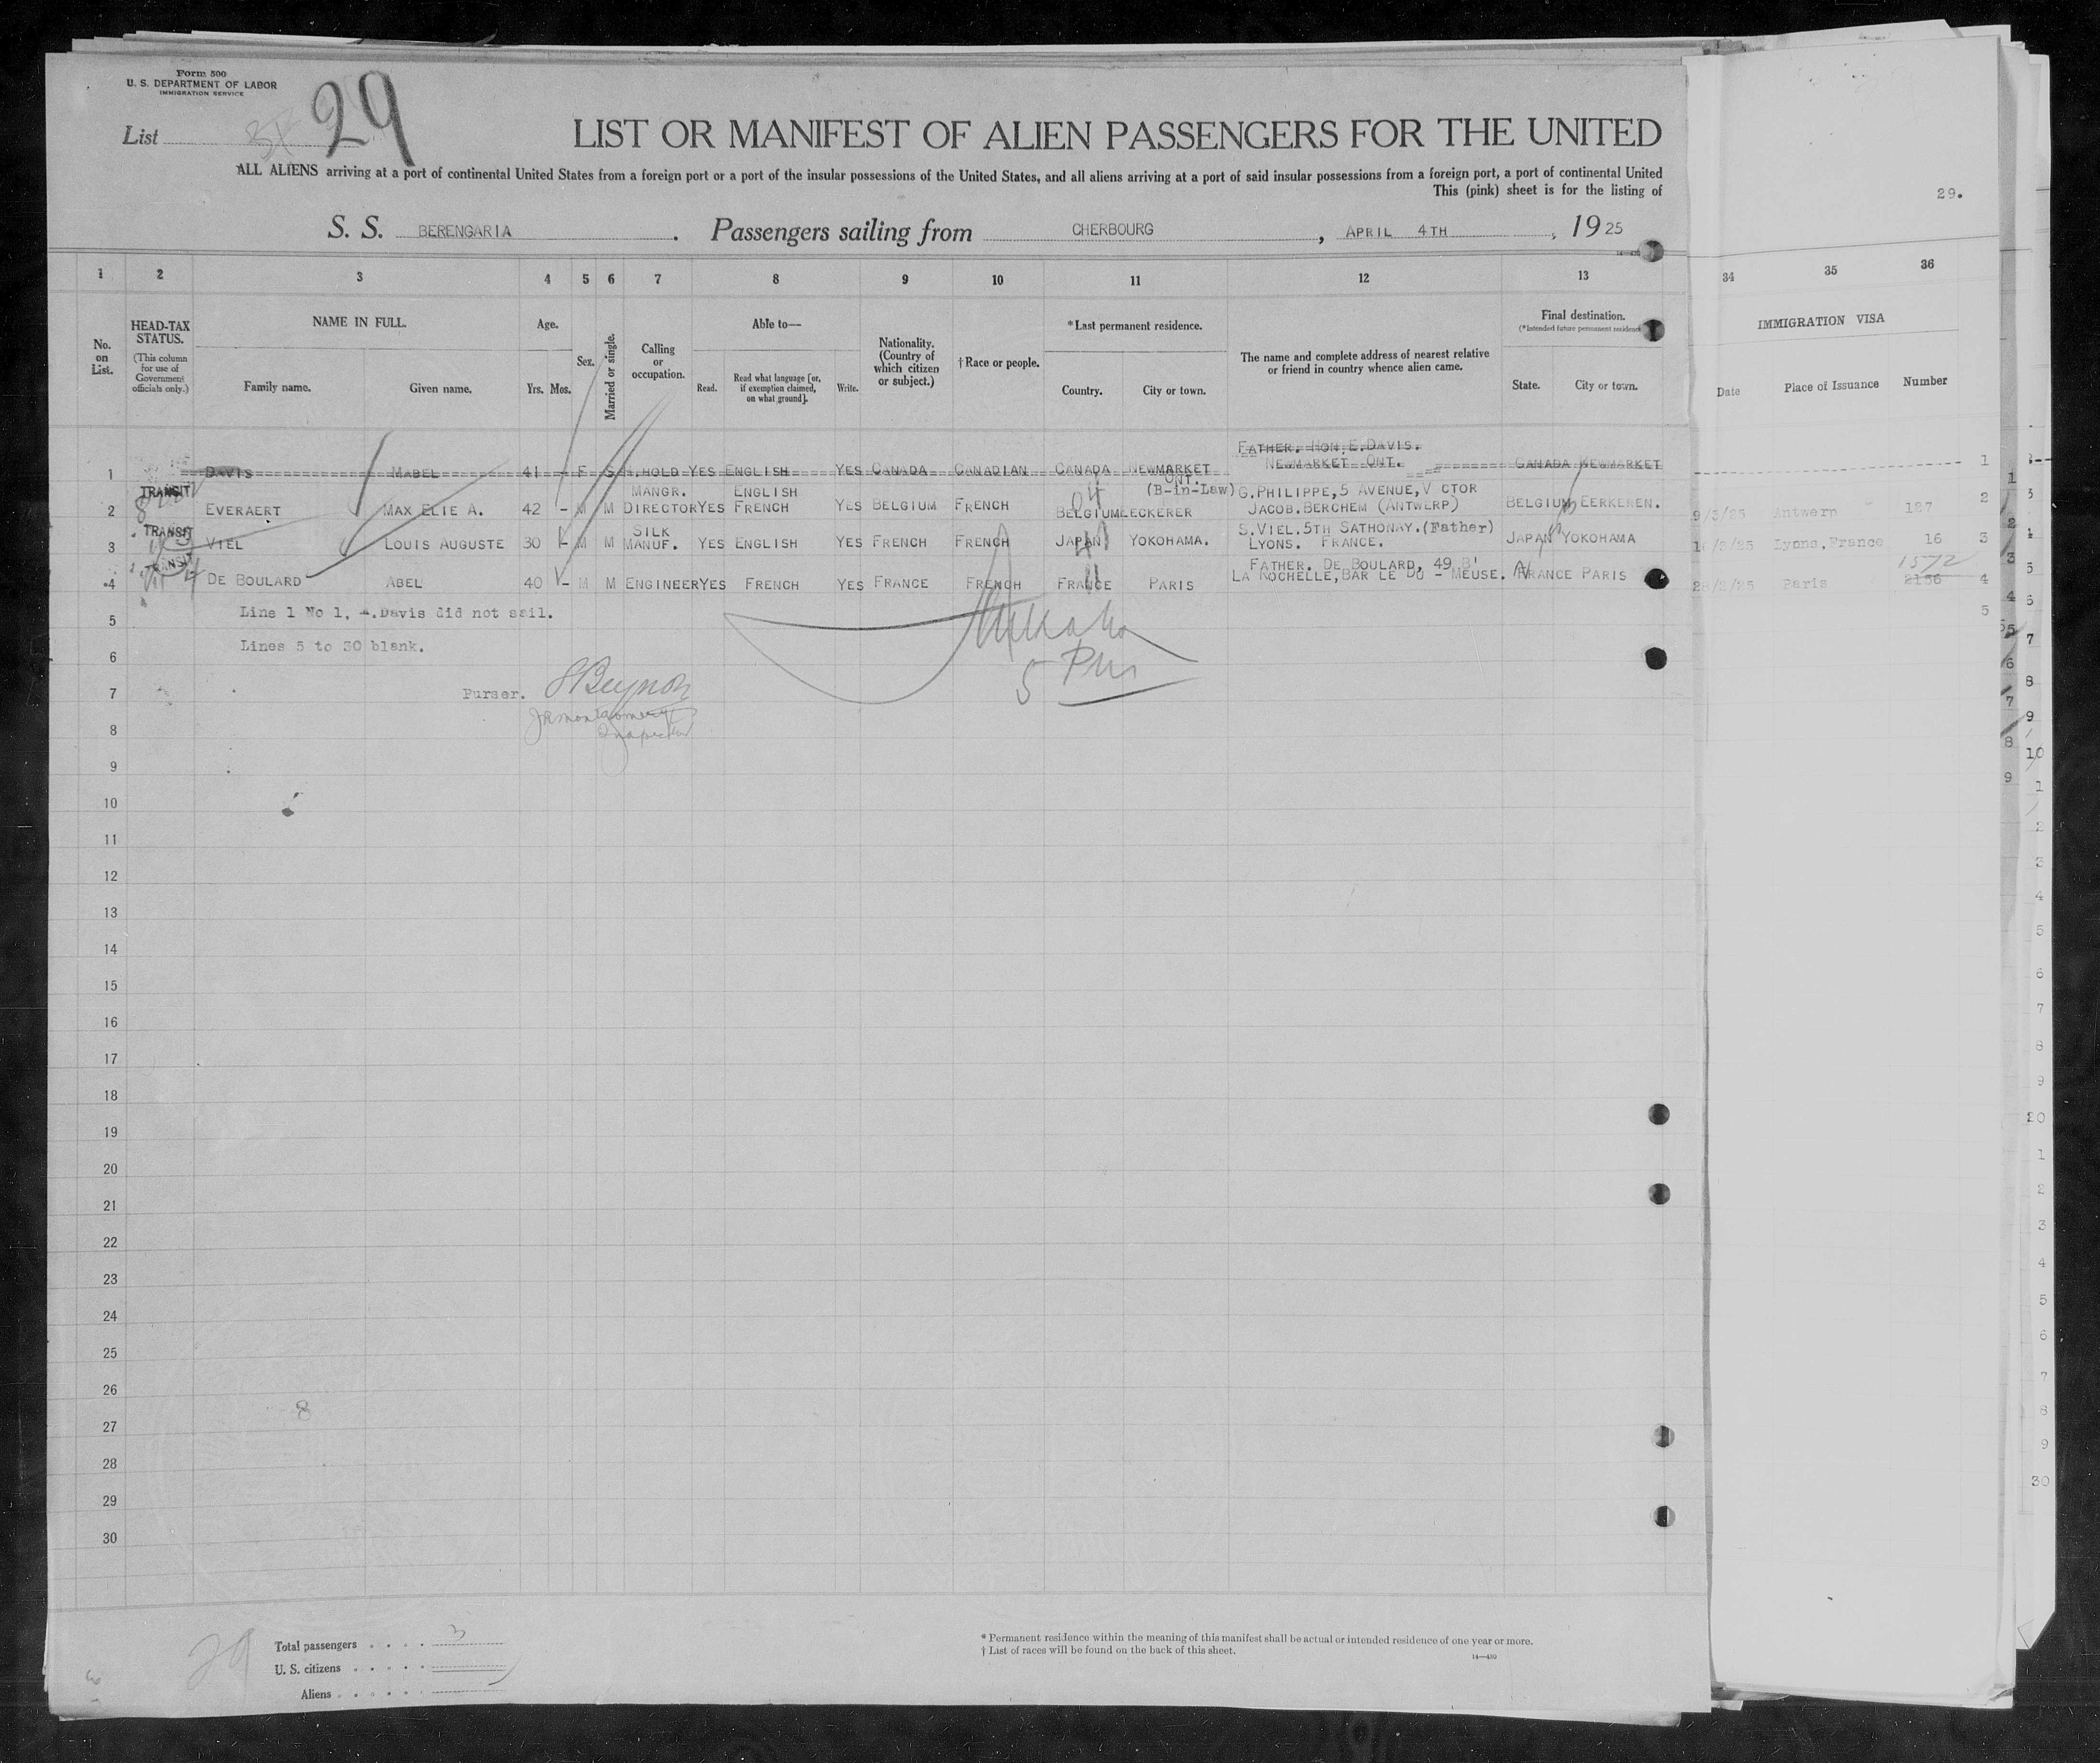 Form 500
U. S. DEPARTMENT OF LABOR
IMMIGRATION SERVICE
List 29
LIST OR MANIFEST OF ALIEN PASSENGERS FOR THE UNITED
ALL ALIENS arriving at a port of continental United States from a foreign port or a port of the insular possessions of the United States, and all aliens arriving at a port of said insular possessions from a foreign port, a port of continental United
This (pink) sheet is for the listing of
29.
S. S. BERENGARIA. Passengers sailing from CHERBOURG, APRIL 4TH, 1925
1 2 3 4 5 6 7 8 9 10 11 12 13 34 35 36
No. on List.
HEAD-TAX STATUS.
(This column for use of Government officials only.)
NAME IN FULL.
Family name. Given name.
Age.
Yrs. Mos.
Sex.
Married or single.
Calling or occupation.
Able to—
Read. Read what language [or, if exemption claimed, on what ground]. Write.
Nationality. (Country of which citizen or subject.)
† Race or people.
*Last permanent residence.
Country. City or town.
The name and complete address of nearest relative or friend in country whence alien came.
Final destination.
(*Intended future permanent residence)
State. City or town.
IMMIGRATION VISA
Date Place of Issuance Number
FATHER. HON.E.DAVIS.
1 DAVIS MABEL 41 - F S H.HOLD YES ENGLISH YES CANADA CANADIAN CANADA NEWMARKET ONT. NEWMARKET ONT. CANADA NEWMARKET 1
TRANSIT MANGR. ENGLISH (B-in-Law) G.PHILIPPE,5 AVENUE,V CTOR
2 EVERAERT MAX ELIE A. 42 - M M DIRECTOR YES FRENCH YES BELGIUM FRENCH BELGIUM EECKERER JACOB.BERCHEM (ANTWERP) BELGIUM EERKEREN. 9/3/25 Antwerp 187 2
TRANSIT SILK S.VIEL.5TH SATHONAY.(Father)
3 VIEL LOUIS AUGUSTE 30 - M M MANUF. YES ENGLISH YES FRENCH FRENCH JAPAN YOKOHAMA. LYONS. FRANCE. JAPAN YOKOHAMA /3/25 Lyons,France 16 3
TRANSIT FATHER. DE BOULARD, 49 B' 1572
4 DE BOULARD ABEL 40 - M M ENGINEER YES FRENCH YES FRANCE FRENCH FRANCE PARIS LA ROCHELLE,BAR LE DU - MEUSE. FRANCE PARIS 28/3/25 Paris 2156 4
5 Line 1 No 1, .Davis did not sail. 5
6 Lines 5 to 30 blank.
5 Pm
7 Purser. S Beynon
JAMontgomery
8 Inspector
9
10
11
12
13
14
15
16
17
18
19
20
21
22
23
24
25
26
8
27
28
29
30
29
Total passengers . . . . 3
U. S. citizens . . . . .
Aliens . . . . . .
* Permanent residence within the meaning of this manifest shall be actual or intended residence of one year or more.
† List of races will be found on the back of this sheet.
14—430